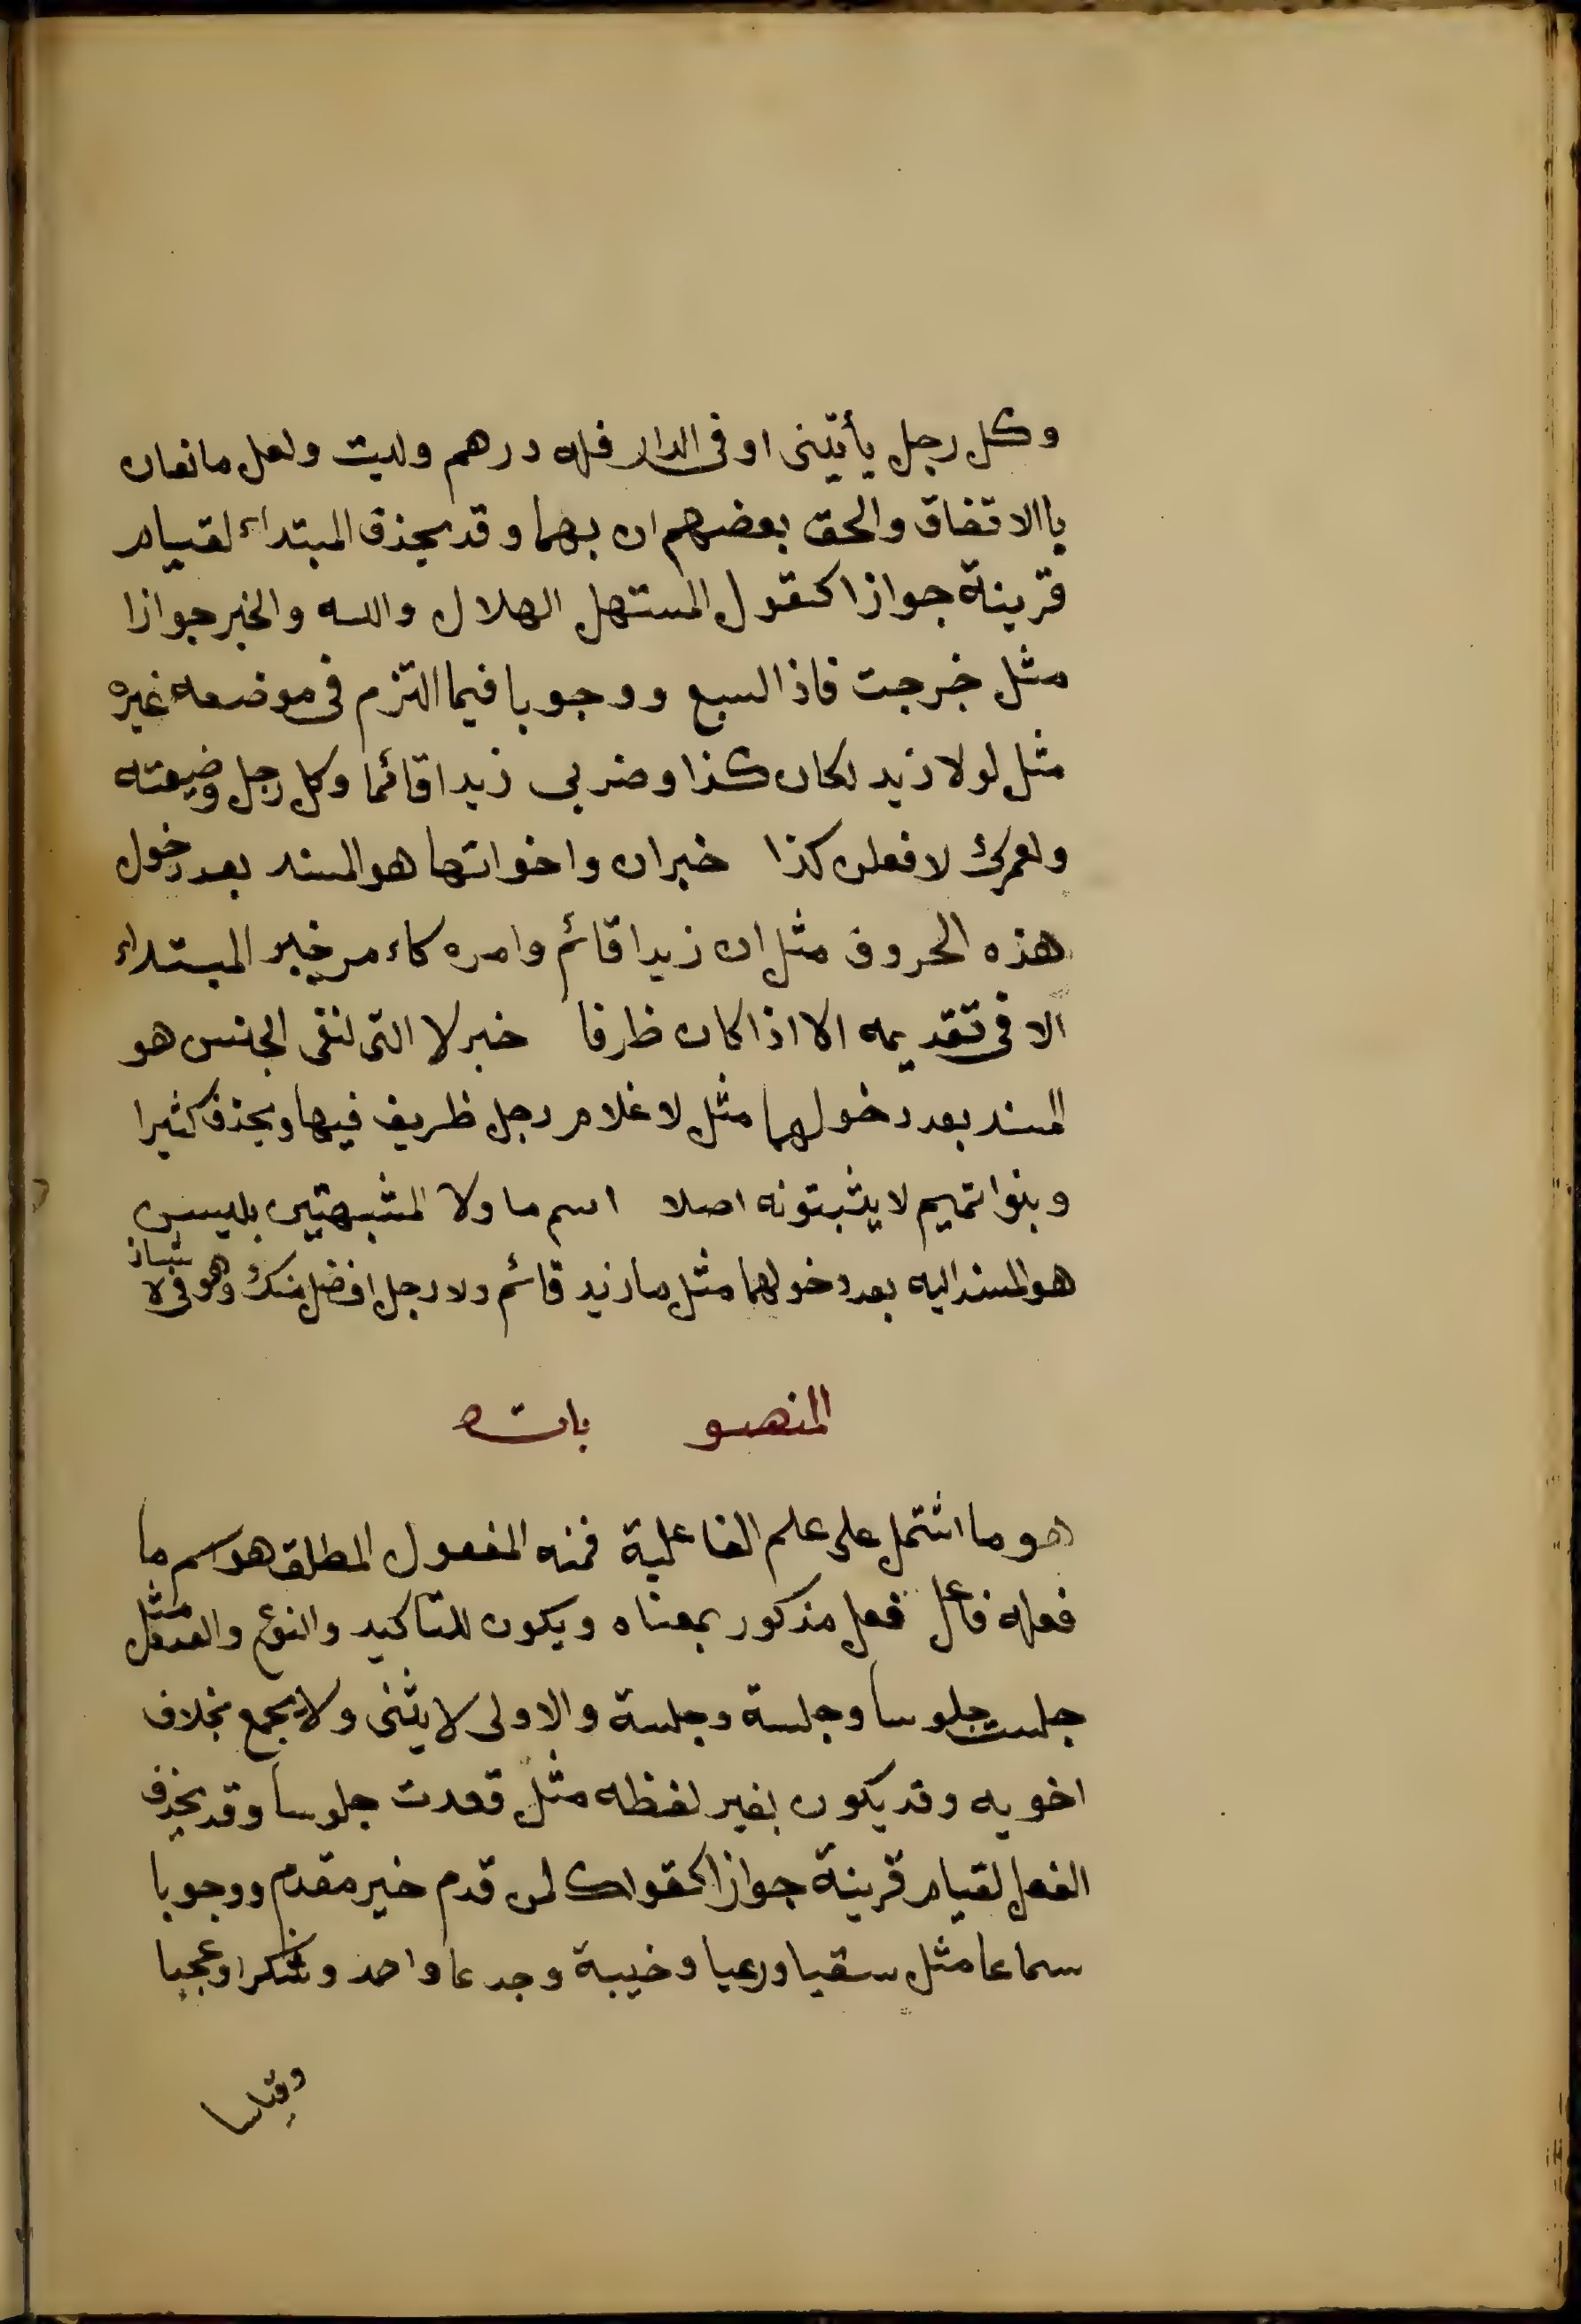 وكل رجل يأتينى او فى الدار فله درهم وليت ولعل مانعان
باالاتفاق والحق بعضهم ان بهما وقد يحذف المبتداء لقيام
قرينة جوازا كقول المستهل الهلال والله والخبر جوازا
مثل خرجت فاذا السبع ووجوبا فيما التزم فى موضعه غيره
مثل لولا زيد لكان كذا وضربى زيدا قائما وكل رجل وضيعته
ولعمرك لافعلن كذا خبر ان واخواتها هو المسند بعد دخول
هذه الحروف مثل ان زيدا قائم وامره كاءمر خبر المبتداء
الا فى تقديمه الا اذا كان ظرفا خبر لا التى لنفى الجنس هو
المسند بعد دخولها مثل لا غلام رجل ظريف فيها ويحذف كثيرا
وبنوا تميم لا يثبتونه اصلا اسم ما ولا المشبهتين بليس
هو المسند اليه بعد دخولهما مثل ما زيد قائم ولا رجل افضل منك وهو فى لا شاذ
المنصوبات
هو ما اشتمل على علم الفاعلية فمنه المفعول المطلق هو اسم ما
فعله فاعل فعل مذكور بمعناه ويكون للتاكيد والنوع والعدد مثل
جلست جلوسا وجلسة وجلسة والاولى لا يثنى ولا يجمع بخلاف
اخويه وقد يكون بغير لفظه مثل قعدت جلوسا وقد يحذف
الفعل لقيام قرينة جوازا كقولك لمن قدم خير مقدم ووجوبا
سماعا مثل سقيا ورعيا وخيبة وجدعا واحمد وشكرا وعجبا
وقياسا